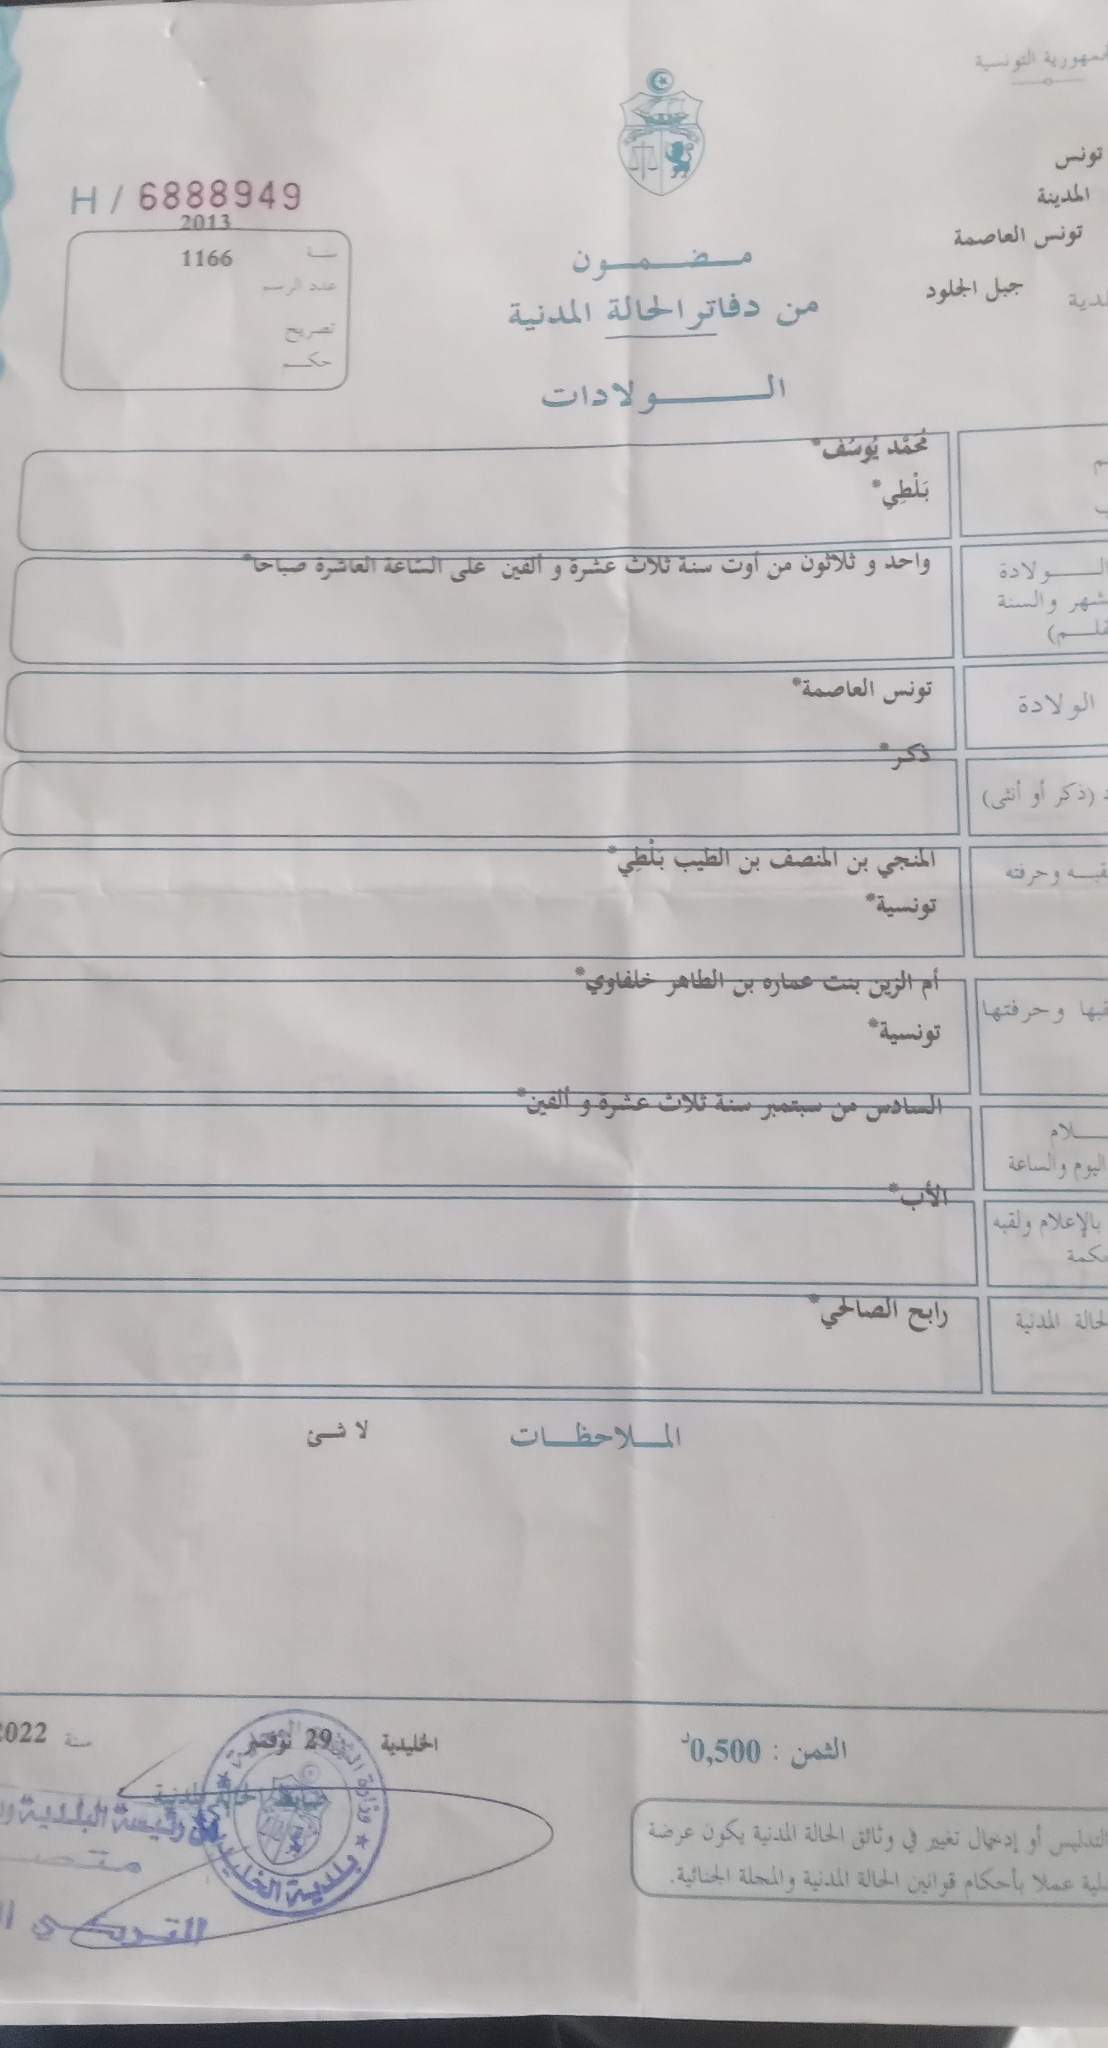 الجمهورية التونسية
تونس
المدينة
تونس العاصمة
جبل الجلود
H / 6888949
2013
سنة
1166
عدد الرسم
تصريح
حكم
مضمون
من دفاتر الحالة المدنية
الولادات
مُحَمَّد يُوسُف*
بَلْطِي*
الولادة
واحد و ثلاثون من أوت سنة ثلاث عشرة و ألفين على الساعة العاشرة صباحا*
والسنة
الولادة
تونس العاصمة*
(ذكر أو أنثى)
ذكر*
وحرفته
المنجي بن المنصف بن الطيب بَلْطِي*
تونسية*
وحرفتها
أم الزين بنت عماره بن الطاهر خلفاوي*
تونسية*
السادس من سبتمبر سنة ثلاث عشرة و ألفين*
اليوم والساعة
الأب*
بالإعلام ولقبه
رابح الصالحي*
الحالة المدنية
الملاحظات
لا شئ
الثمن : 0,500د
الخليدية
29 نوفمبر
سنة 2022
ضابط الحالة المدنية
رئيسة البلدية
بلدية الخليدية
التدليس أو إدخال تغيير في وثائق الحالة المدنية يكون عرضة
عملا بأحكام قوانين الحالة المدنية والمجلة الجنائية.